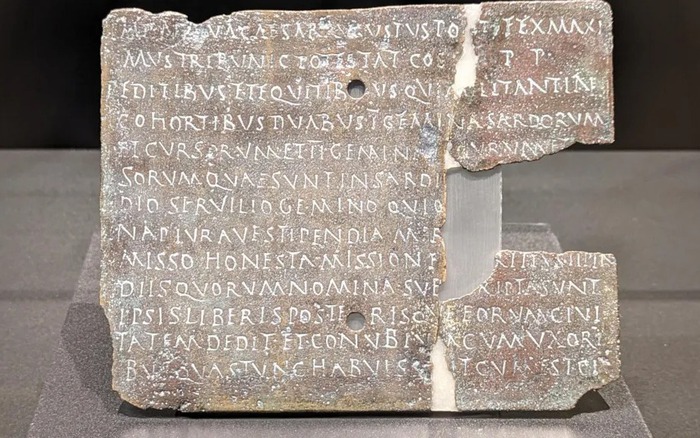 IMP NERVA CAESAR AVGVSTVS PONTIFEX MAXI
MVS TRIBVNIC POTESTAT COS P P
PEDITIBVS ET EQVITIBVS QVI MILITANT IN
COHORTIBVS DVABVS I GEMINA SARDORVM
ET CVRSORVM ET II GEMINA
SORVM QVAE SVNT IN SARDI
DIO SERVILIO GEMINO QVI Q
NA PLVRAVE STIPENDIA MER
MISSO HONESTA MISSIONE
DIIS QVORVM NOMINA SVBSCRIPTA SVNT
IPSIS LIBERIS POSTERISQVE EORVM CIVI
TATEM DEDIT ET CONVBIVM CVM VXORI
BVS QVAS TVNC HABVISSENT CVM EST CI